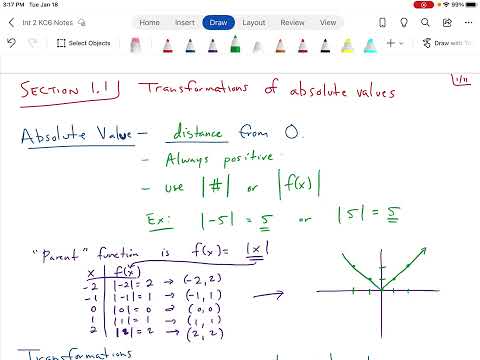 3:17 PM Tue Jan 18
99%
Int 2 KC6 Notes
Word
Transition
Draw
Select Objects
Draw with To
Section 1.1 Transformations of absolute values
1/11
Absolute Value - distance from 0.
- Always positive.
- use |#| or |f(x)|
Ex: |-5| = 5 or |5| = 5
"Parent" function is f(x) = |x|
x f(x)
-2 |-2| = 2 → (-2, 2)
-1 |-1| = 1 → (-1, 1)
0 |0| = 0 → (0, 0)
1 |1| = 1 → (1, 1)
2 |2| = 2 → (2, 2)
Transformations